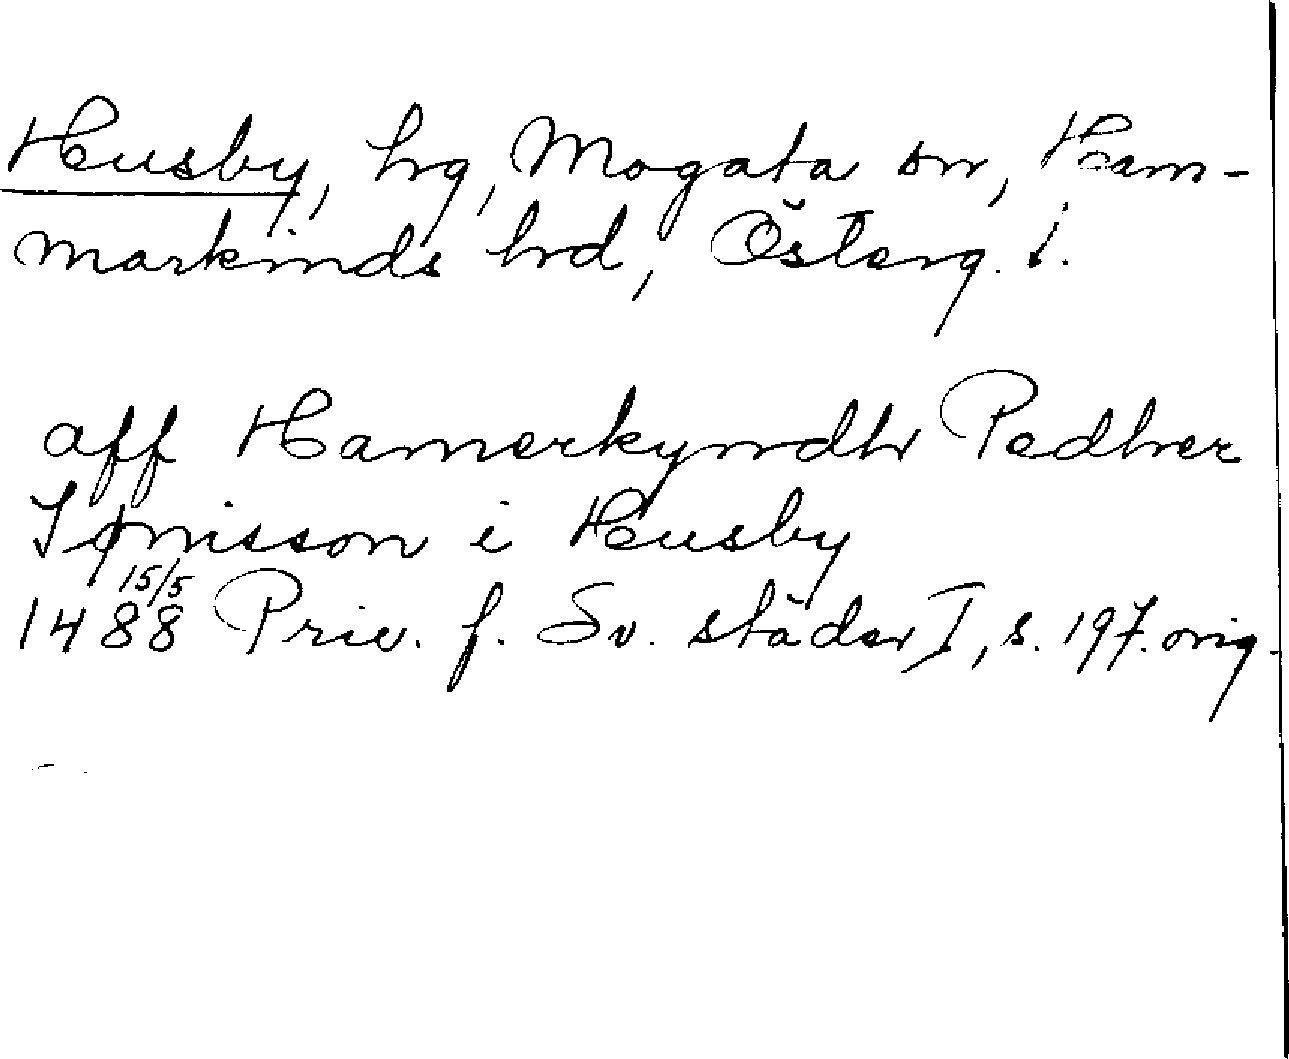 Husby, hg, Mogata sn, Ham-
markinds hd, Österg. l.
aff Hamerkyndh Pedher
Jønisson i Husby
15/5
1488 Priv. f. Sv. städer I, s. 197. orig.